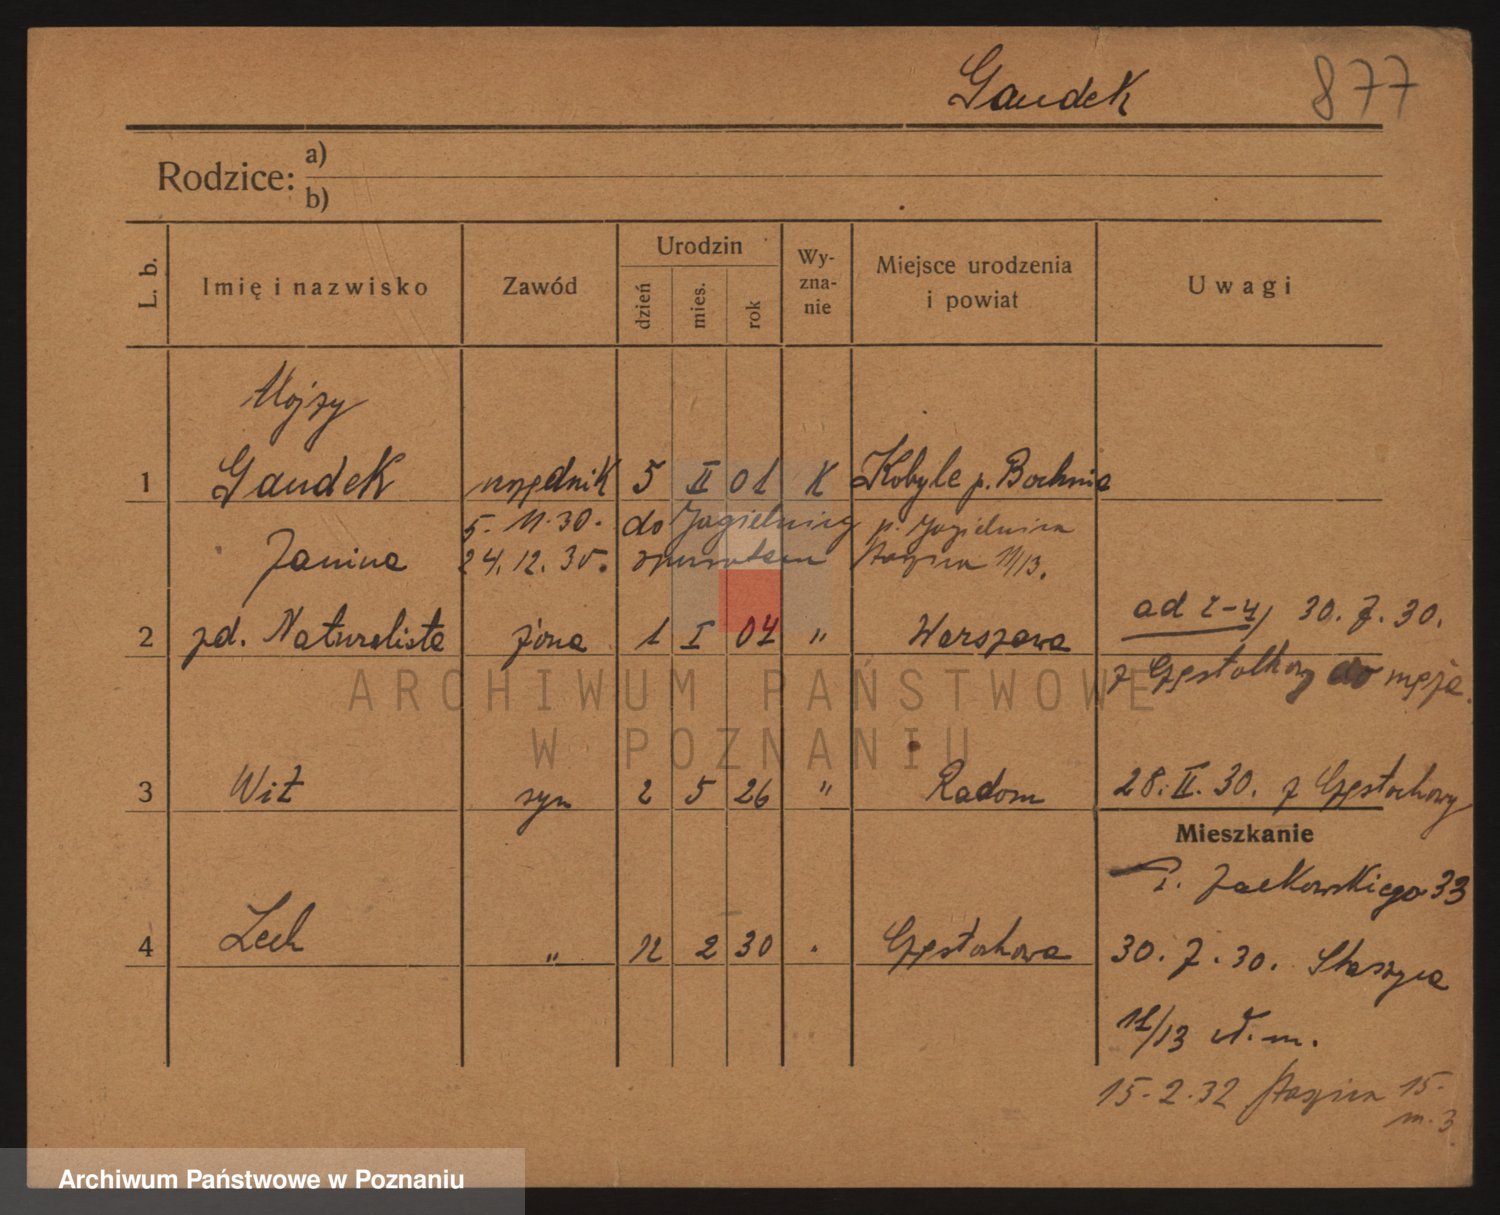 Gaudek 877
Rodzice: a)
b)
L. b. Imię i nazwisko Zawód Urodzin dzień mies. rok Wy-zna-nie Miejsce urodzenia i powiat Uwagi
Mojzy
1 Gaudek urzędnik 5 II 01 K Kobyle p. Bochnia
5. 11. 30. do Jagielnicy p. Jagielnica
Janina 24. 12. 30. zpowrotem Staszica 11/13.
2 zd. Naturalista żona 1 I 04 " Warszawa ad 2-4/ 30. 7. 30.
z Częstochowy do męża.
3 Wit syn 2 5 26 " Radom 28. II. 30. z Częstochowy
Mieszkanie
Jackowskiego 33
4 Lech " 12 2 30 " Częstochowa 30. 7. 30. Staszyca
11/13 m.
15-2-32 Staszica 15-
m. 3
ARCHIWUM PAŃSTWOWE
W POZNANIU
Archiwum Państwowe w Poznaniu